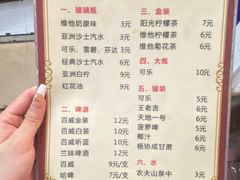 一、玻璃瓶
维他奶原味 3元
亚洲沙士汽水 3元
可乐、雪碧、芬达 3元
经典沙士汽水 6元
亚洲白柠 9元
红花油 9元
二、啤酒
百威金装 12元
百威白装 10元
百威昕蓝 10元
兰妹啤酒 10元
百威 9元
哈啤 7元
三、盒装
阳光柠檬茶 7元
维他柠檬茶 6元
维他菊花茶 6元
四、大瓶
可乐 10元
五、罐装
可乐 5元
王老吉 6元
天地一号 6元
菠萝啤 5元
椰汁 6元
杨协成甘蔗 6元
六、水
农夫山泉中 3元